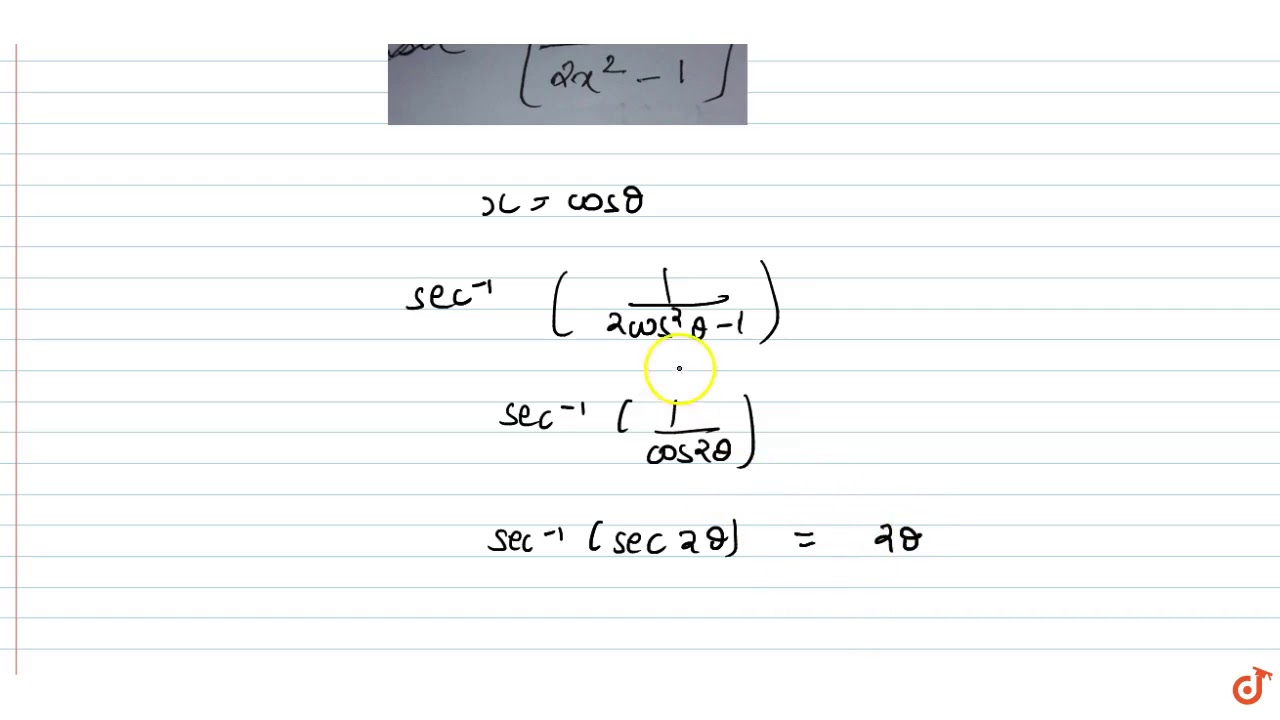 2x² - 1
x = cosθ
sec⁻¹ ( 1 / 2cos²θ - 1 )
sec⁻¹ ( 1 / cos2θ )
sec⁻¹ (sec 2θ) = 2θ